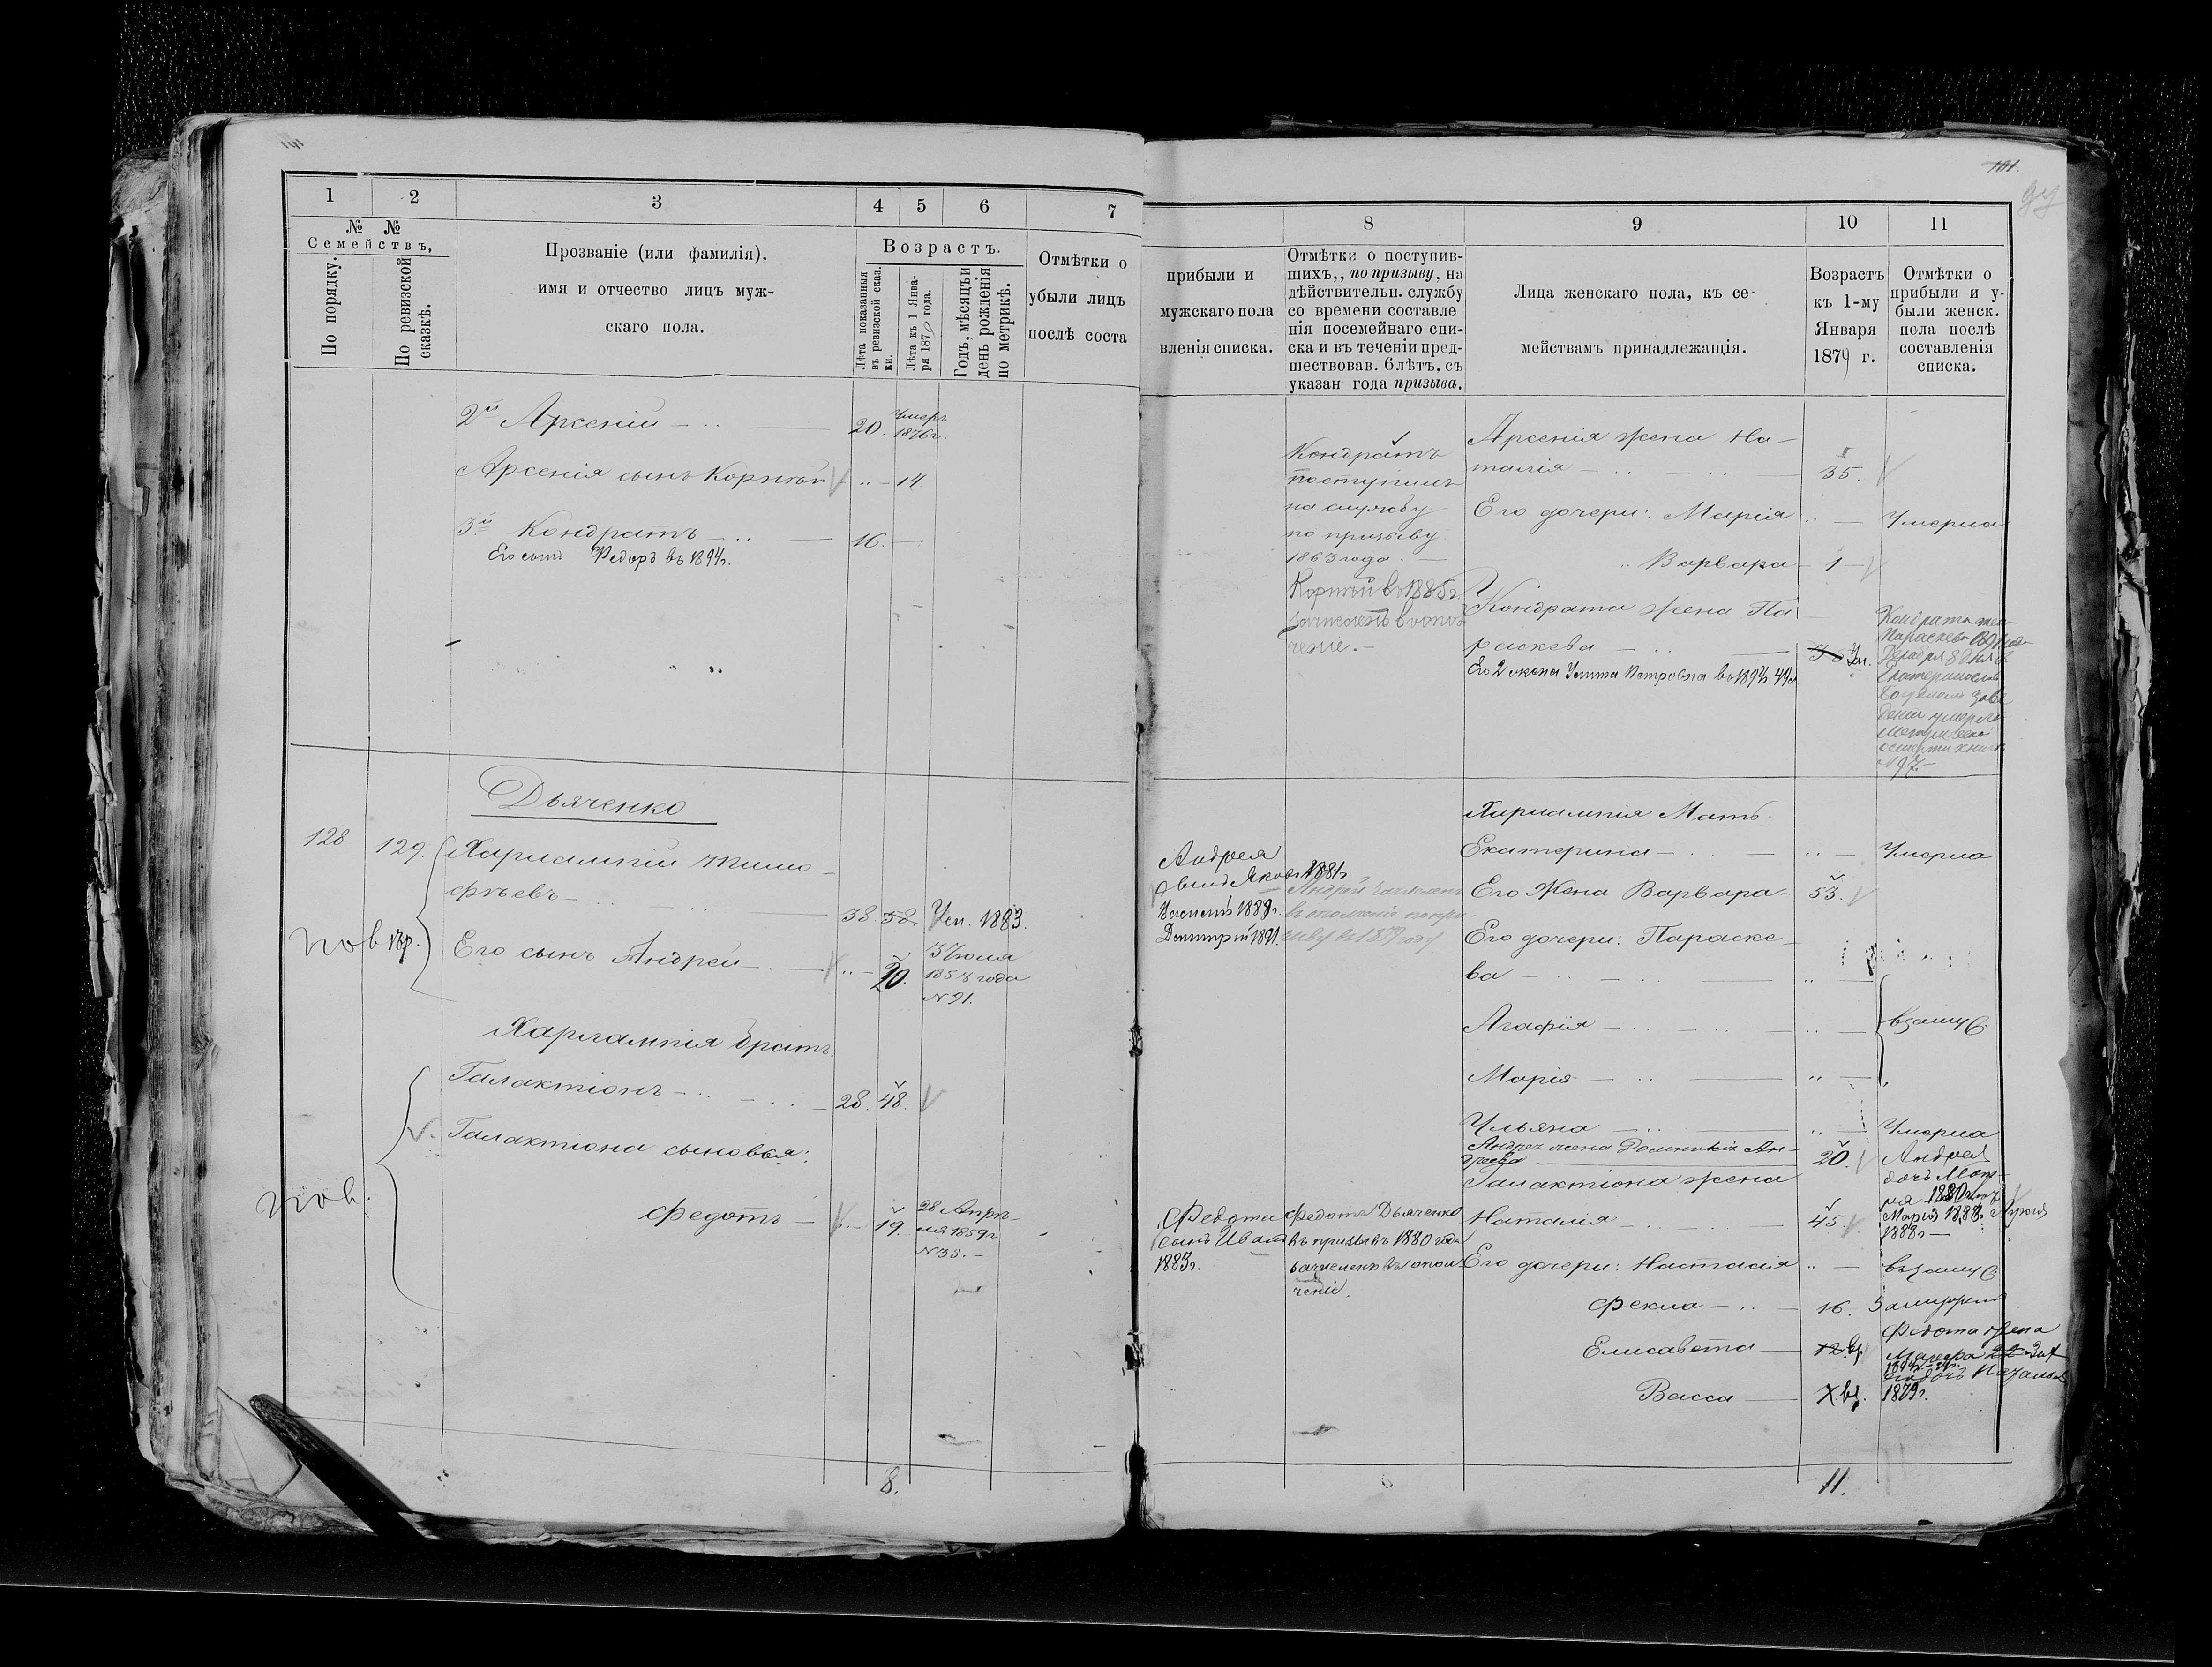 101.
1 2 3 4 5 6 7
№ №
Семействъ,
По порядку.
По ревизской сказкѣ.
Прозваніе (или фамилія),
имя и отчество лицъ муж-
скаго пола.
Возрастъ.
Лѣта показанныя въ ревизской сказ. ки.
Лѣта къ 1 Янва- ря 1879 года.
Годъ, мѣсяцъ и день рожденія по метрикѣ.
Отмѣтки о
убыли лицъ
послѣ соста
2й Арсеній 20. Умеръ
1876 г.
Арсенія сынъ Корнѣй 14
3й Кондратъ 16.
Его сынъ Федоръ въ 1894 г.
Дьяченко
128 129. Харлампій Тимо
фѣевъ 38. 58. Ум. 1883.
Его сынъ Андрей 20. 3 Іюля
1858 года
N 91.
Харлампія братъ
Галактіонъ 28. 48.
Галактіона сыновья:
Федотъ 19. 28 Апрѣ-
ля 1859 г
N 33.
8.
8 9 10 11
прибыли и
мужскаго пола
вленія списка.
Отмѣтки о поступив-
шихъ,, по призыву, на
дѣйствительн. службу
со времени составле
нія посемейнаго спи-
ска и въ теченіи пред-
шествовав. 6 лѣтъ, съ
указан года призыва.
Лица женскаго пола, къ се-
мействамъ принадлежащія.
Возрастъ
къ 1-му
Января
1879 г.
Отмѣтки о
прибыли и у-
были женск.
пола послѣ
составленія
списка.
Кондратъ
поступилъ
на службу
по призыву
1863 года.
Корнѣй въ 1885 г.
зачисленъ въ опол
ченіе.
Арсенія жена На-
талія 35.
Его дочери: Марія Умерла
Варвара 1
Кондрата жена Па
раскева Ум.
Его 2 жена Улита Петровна въ 1894 г. 44 л
Кондрата жена
Параскева
Декабря 8 дня въ
N 97.
Харлампія Мать
Екатерина Умерла
Андрея
Яковъ 1881 г
Василій 1888 г.
Дмитрій 1891.
Андрей зачисленъ
въ ополченіе по при-
зыву въ 1879 году
Его Жена Варвара 53.
Его дочери: Параске-
ва
Агафія взамуж.
Марія
Ульяна Умерла
Андрея жена Доминикія Ан-
дреева 20. Андрея
дочь
Галактіона жена
Наталія 45. Марія 1888.
1888 г
Федота
сынъ Иванъ
1883 г.
Федотъ Дьяченко
въ призывъ 1880 года
зачисленъ въ опол
ченіе.
Его дочери: Настасія взамуж.
Фекла 16. Замужем
Елисавета 12. Федота жена
его дочь Наталья
Васса 1879 г.
11.